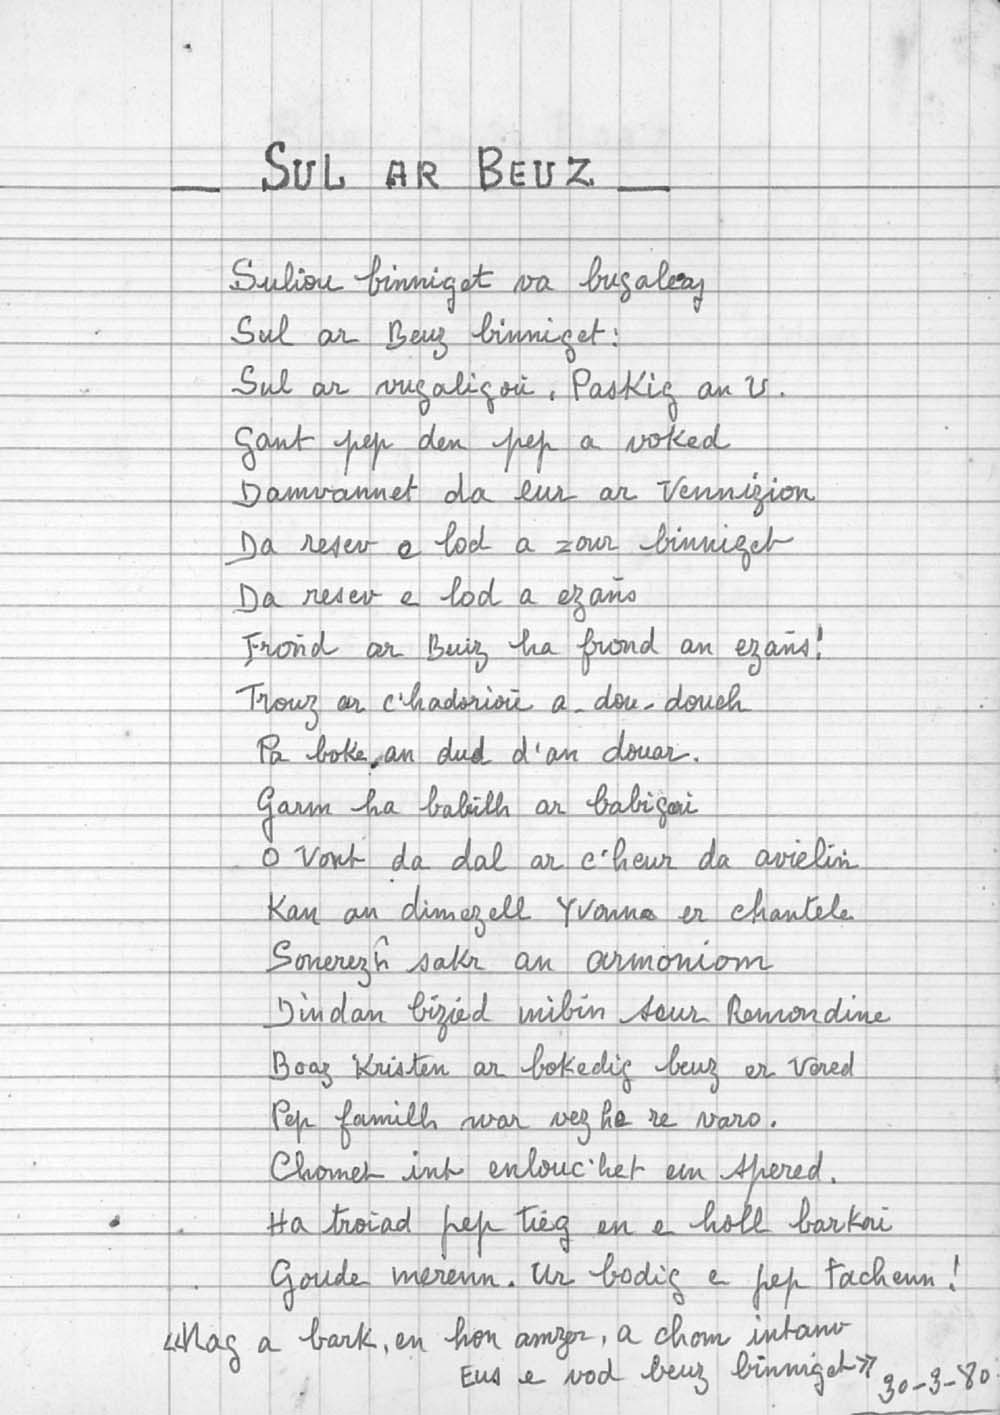 SUL AR BEUZ
Suliou binniget va bugaleaj
Sul ar Beuz binniget:
Sul ar vugaligoù, Paskig an U.
Gant pep den pep a voked
Damvannet da eur ar Vennizion
Da resev e lod a zour binniget
Da resev e lod a ezañs
Froñd ar Beuz ha frond an ezañs!
Trouz ar c'hadorioù a-dou-douch
Pa boke an dud d'an douar.
Garm ha babilh ar babigoù
O Vont da dal ar c'heur da avielin
Kan an dimezell Yvonne er chantele
Sonerezh sakr an armoniom
Dindan bizied mibin seur Remondine
Boaz Kristen ar bokedig beuz er Vered
Pep familh war vez he re varo.
Chomet int enlouc'het em spered.
Ha troiad pep Tieg en e holl barkoù
Goude merenn. Ur bodig e pep tachenn!
«Nag a bark, en hon amzer, a chom intanv
Eus e vod beuz binniget»
30-3-80